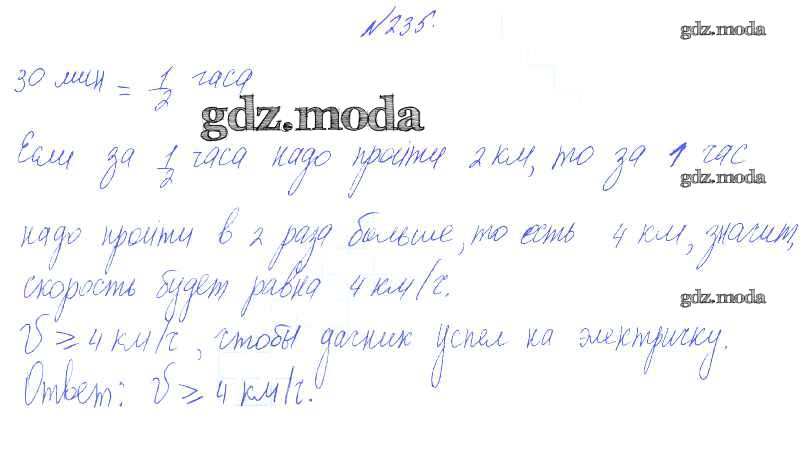 №235.
gdz.moda
30 мин = 1/2 часа
gdz.moda
Если за 1/2 часа надо пройти 2 км, то за 1 час
gdz.moda
надо пройти в 2 раза больше, то есть 4 км, значит,
скорость будет равна 4 км/ч.
gdz.moda
V ⩾ 4 км/ч, чтобы дачник успел на электричку.
Ответ: V ⩾ 4 км/ч.